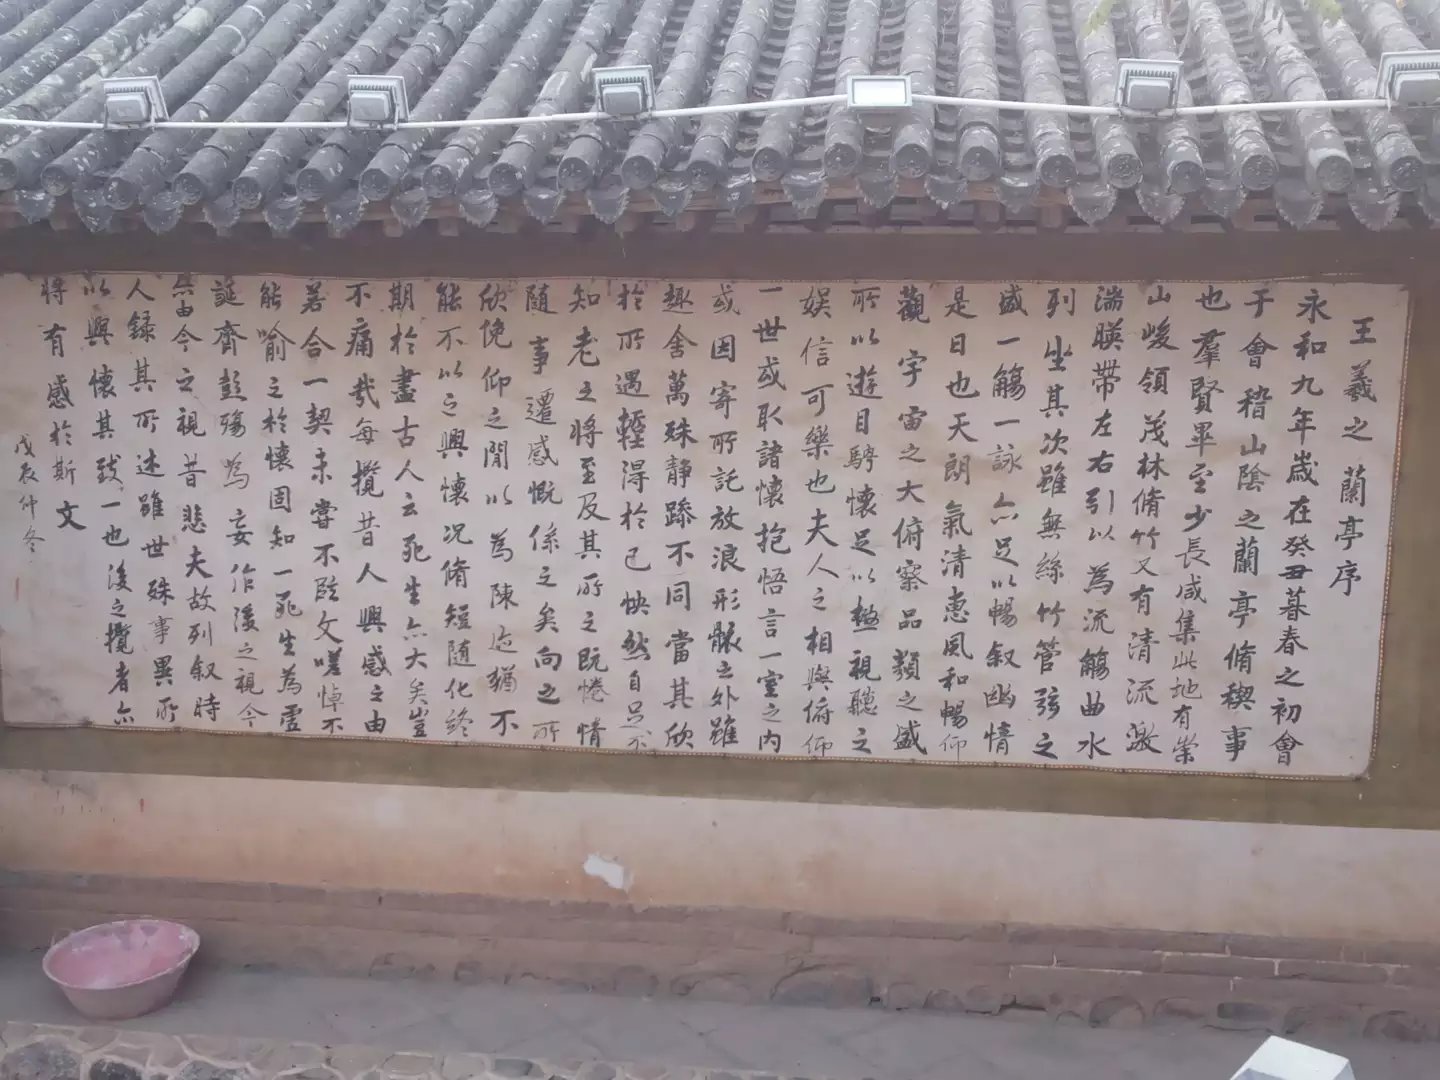 王羲之 蘭亭序
永和九年歲在癸丑暮春之初會
于會稽山陰之蘭亭脩稧事
也羣賢畢至少長咸集此地有崇
山峻領茂林脩竹又有清流激
湍暎帶左右引以為流觴曲水
列坐其次雖無絲竹管弦之
盛一觴一詠亦足以暢叙幽情
是日也天朗氣清惠風和暢仰
觀宇宙之大俯察品類之盛
所以遊目騁懷足以極視聽之
娛信可樂也夫人之相與俯仰
一世或取諸懷抱悟言一室之内
或因寄所託放浪形骸之外雖
趣舍萬殊静躁不同當其欣
於所遇蹔得於己怏然自足不
知老之將至及其所之既惓情
隨事遷感慨係之矣向之所
欣俛仰之間以為陳迹猶不
能不以之興懷况脩短隨化終
期於盡古人云死生亦大矣豈
不痛哉每攬昔人興感之由
若合一契未嘗不臨文嗟悼不
能喻之於懷固知一死生為虛
誕齊彭殤為妄作後之視今
亦由今之視昔悲夫故列叙時
人録其所述雖世殊事異所
以興懷其致一也後之攬者亦
將有感於斯文
戊辰仲冬